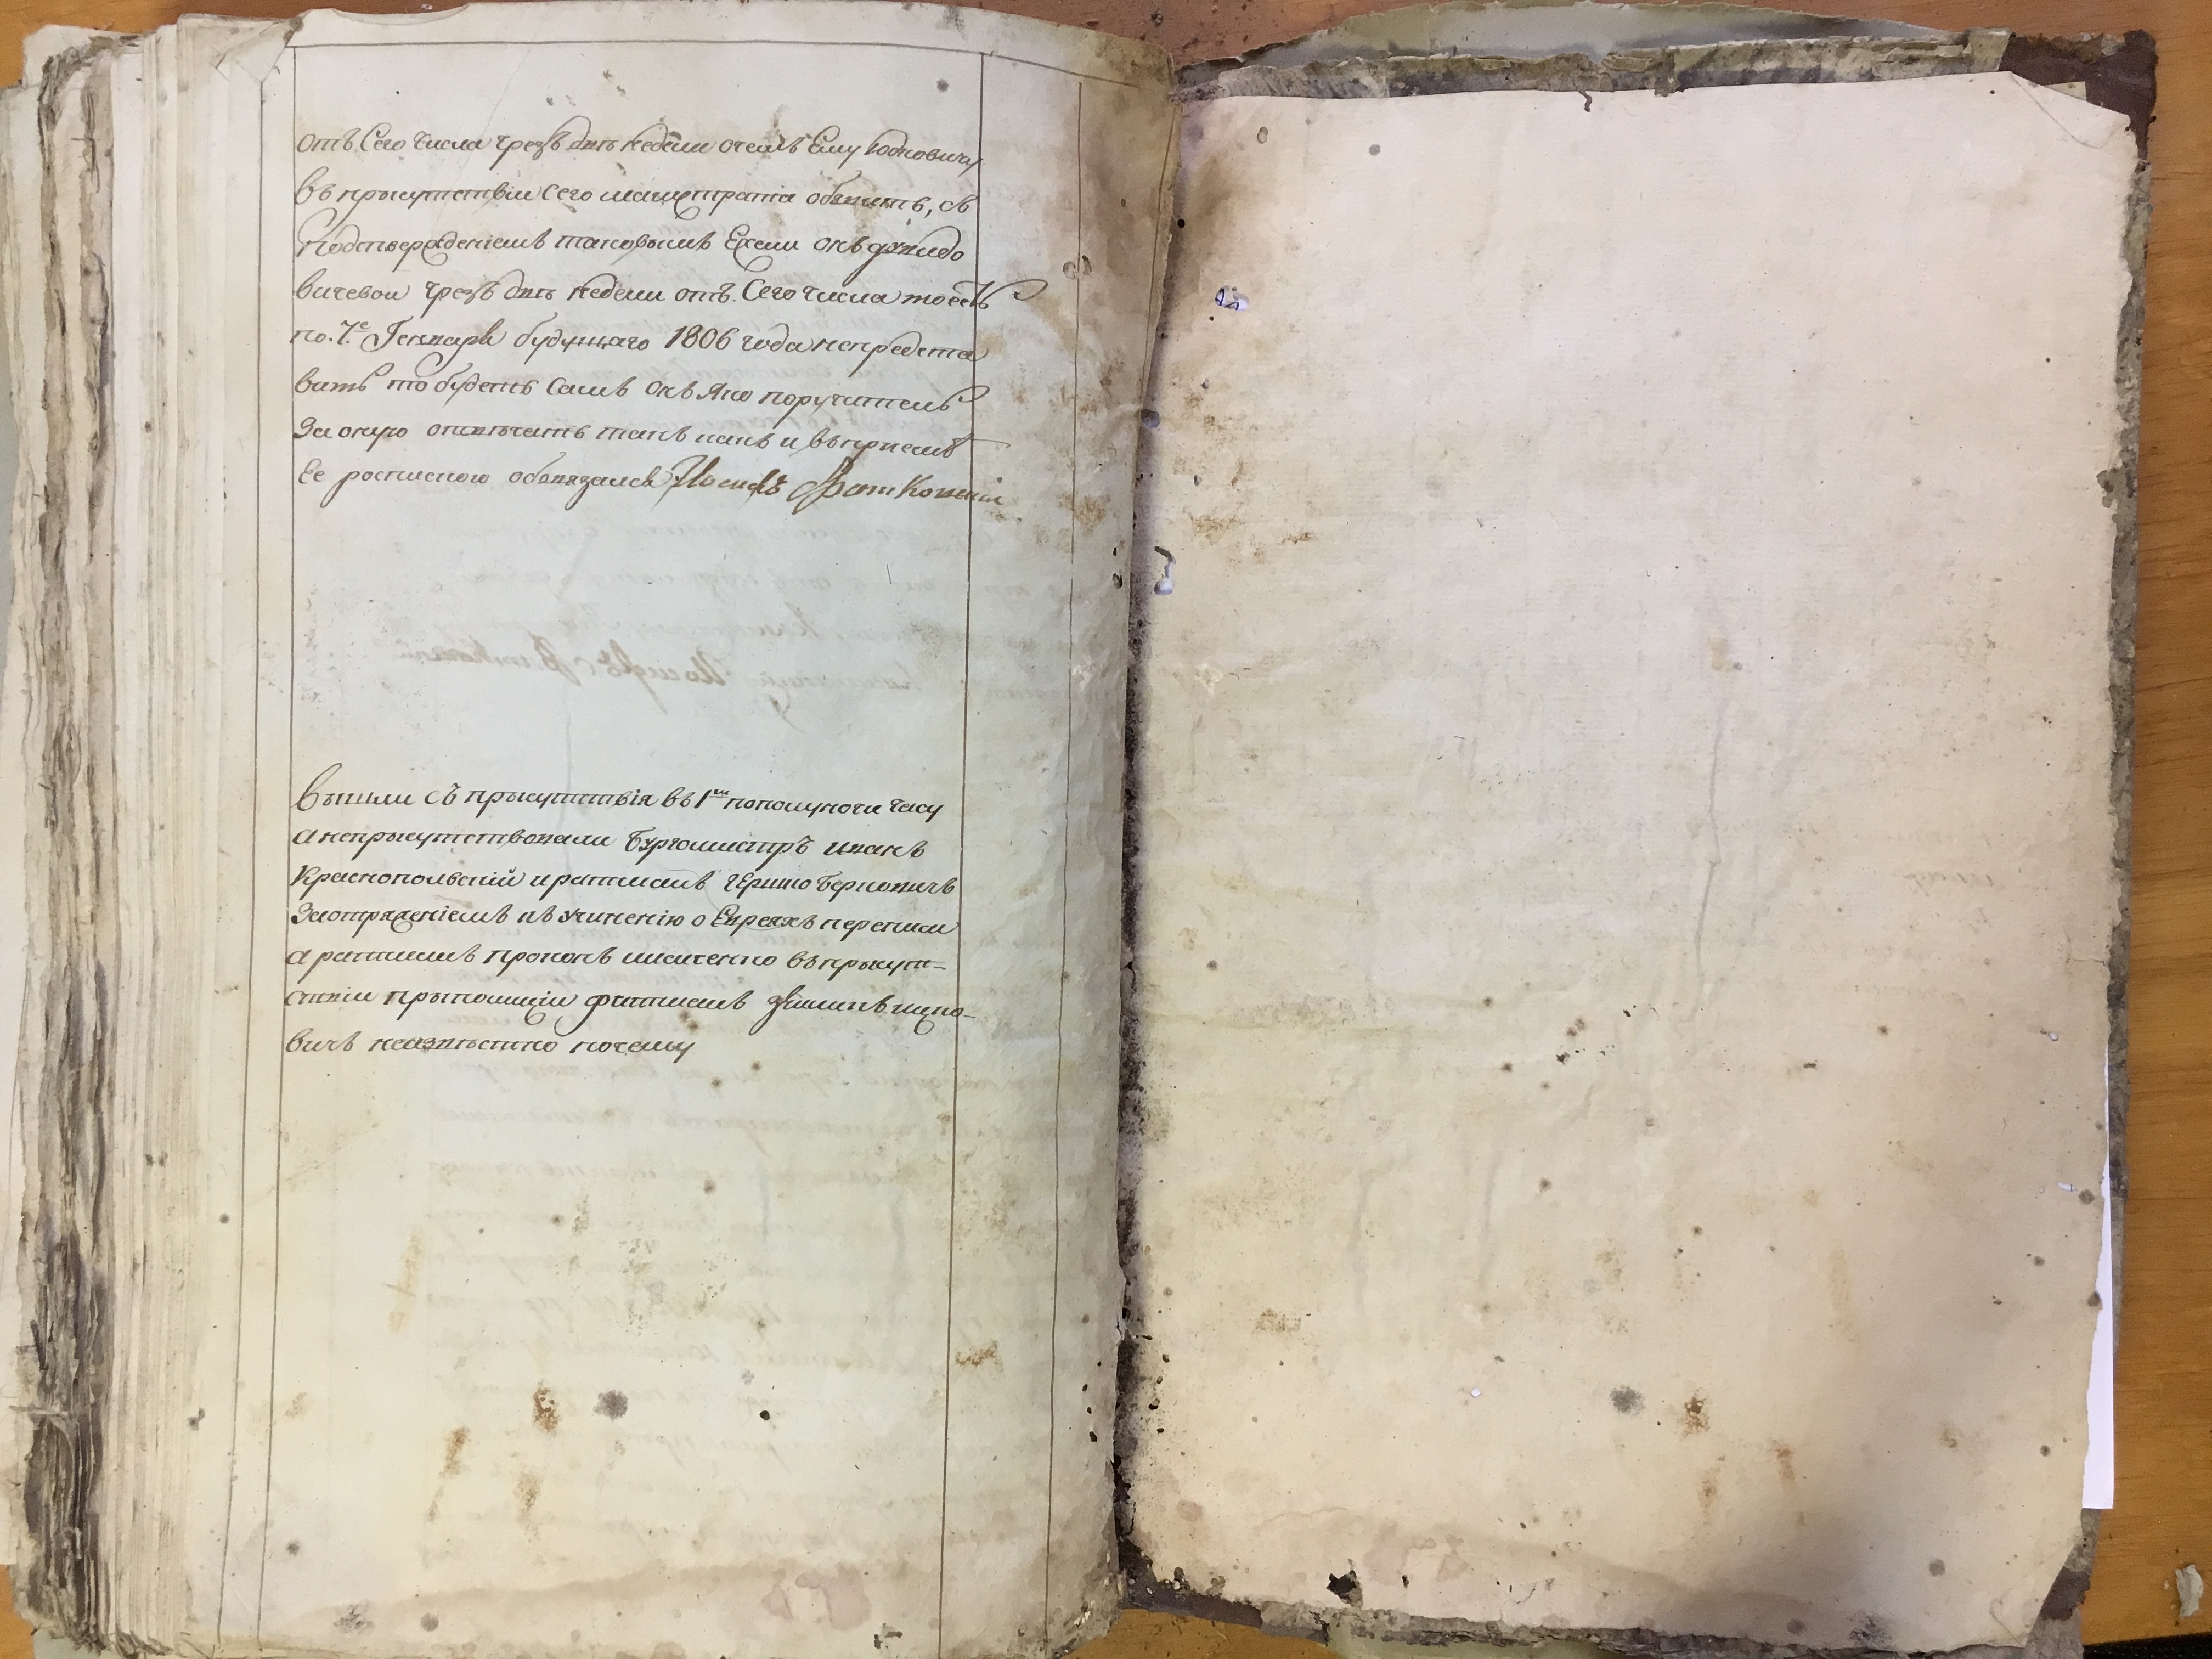 отъ Сего числа чрезъ две недели о чемъ Ему
въ присутствіи сего магистрата обявить, съ
подтверждениемъ таковымъ Ежели онъ
вичевой чрезъ две недели отъ Сего числа то естъ
по 7е Генваря будущаго 1806 года непредста
вить то будетъ Самъ онъ яко поручитель
За оную отвечать такъ какъ и въ
Ее роспискою обовязался Иосифъ
вышли съ присутствія въ 1м пополуночи часу
а неприсутствовали Бургомистръ иванъ
Краснопольскій и ратманъ Берковичъ
За отправлениемъ къ учинению о Евреяхъ переписи
а ратманъ прокопъ въ присут-
ствіи
вичъ неизвестно почему